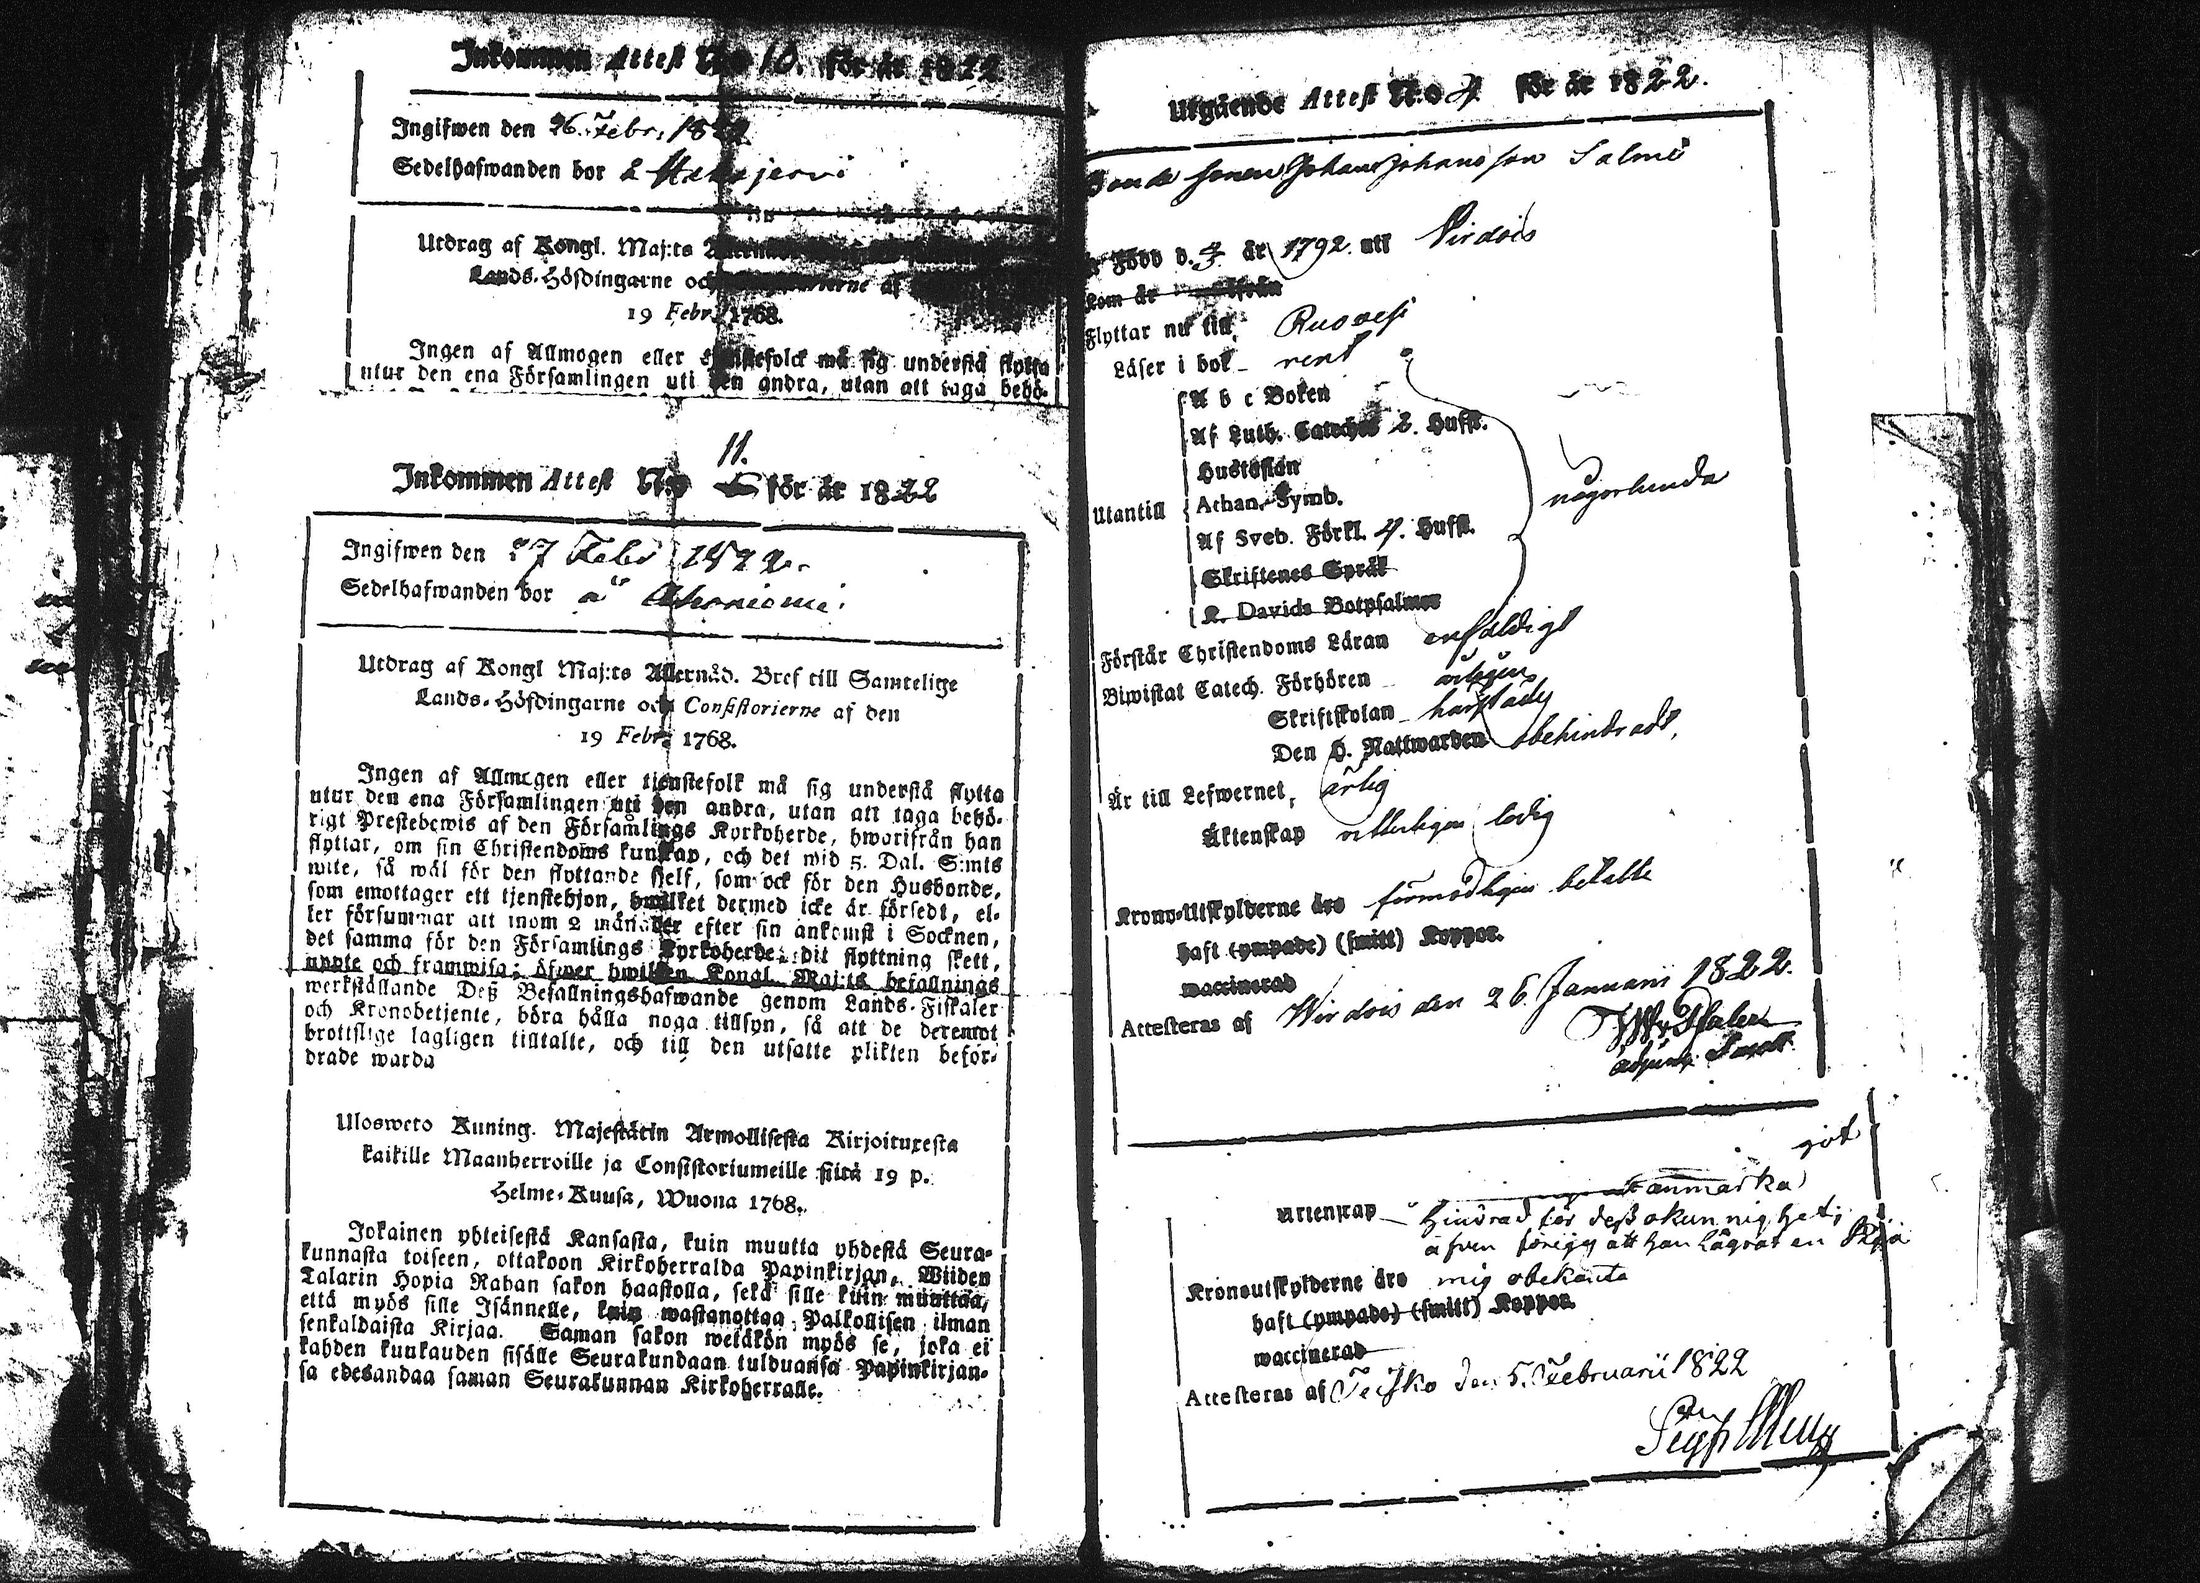 Inkommen Attest N:o 10. för år 1822
Ingifwen den 26. Febr. 1822
Sedelhafwanden bor å
Utdrag af Kongl. Maj:ts
Lands-Höfdingarne och af
19 Febr. 1768.
Ingen af Allmogen eller tjenstefolck må sig understå flytta
utur den ena Församlingen uti den andra, utan att taga behö-
11.
Inkommen Attest N:o för år 1822
Ingifwen den 27 Febr 1822.
Sedelhafwanden bor å
Utdrag af Kongl Maj:ts Allernåd. Bref till Samtelige
Lands-Höfdingarne och Consistorierne af den
19 Febr. 1768.
Ingen af Allmogen eller tjenstefolk må sig understå flytta
utur den ena Församlingen uti den andra, utan att taga behö-
rigt Prestebewis af den Församlings Kyrkoherde, hwarifrån han
flyttar, om sin Christendoms kunskap, och det wid 5. Dal. S:mts
wite, så wäl för den flyttande sjelf, som ock för den Husbonde,
som emottager ett tjenstehjon, hwilket dermed icke är försedt, el-
ler försummar att inom 2 månader efter sin ankomst i Socknen,
det samma för den Församlings Kyrkoherde, dit flyttning skett,
uppte och framwisa; öfwer hwilken Kongl. Maj:ts befallnings
werkställande Deß Befallningshafwande genom Lands-Fiskaler
och Kronobetjente, böra hålla noga tillsyn, så att de deremot
brottslige lagligen tilltalte, och till den utsatte plikten beför-
drade warda
Ulosweto Kuning. Majestätin Armollisesta Kirjoituxesta
kaikille Maanherroille ja Consistoriumeille siitä 19 p.
Helme-Kuusa, Wuona 1768.
Jokainen yhteisestä Kansasta, kuin muutta yhdestä Seura-
kunnasta toiseen, ottakoon Kirkoherralda Papinkirjan, Wiiden
Talarin Hopia Rahan sakon haastolla, sekä sille kuin muuttaa,
että myös sille Isännelle, kuin wastanottaa Palkollisen ilman
senkaldaista Kirjaa. Saman sakon wetäkön myös se, joka ei
kahden kuukauden sisälle Seurakundaan tulduansa Papinkirjan-
sa edesandaa saman Seurakunnan Kirkoherralle.
Utgående Attest N:o 4 för år 1822.
Bonde sonen Johan Johansson Salmi
Född d. 3. år 1792. uti Virdois
som är ifrån
Flyttar nu till Ruovesi
Läser i bok rent
A b c Boken
Af Luth. Cateches 2. Hufst.
Hustaflan
Utantill Athan. Symb. någorlunda
Af Sveb. Förkl. 4. Hufst.
Skriftenes Språk
K. Davids Botpsalmer
Förstår Christendoms Läran enfäldigt
Biwistat Catech. Förhören årligen
Skriftskolan
Den H. Nattwarden obehindradt,
Är till Lefwernet, ärlig
Äktenskap vitterligen ledig
Krono-Utskylderne äro förmodligen betalte
haft (ympade) (smitt) Koppor.
waccinerad
Attesteras af Wirdois den 26. Januarii 1822.
Äktenskap anmärka
hindrad för deß okunnighet;
Kronoutskylderne äro mig obekante
haft (ympade) (smitt) Koppor.
waccinerad
Attesteras af Teisko den 5. Februarii 1822